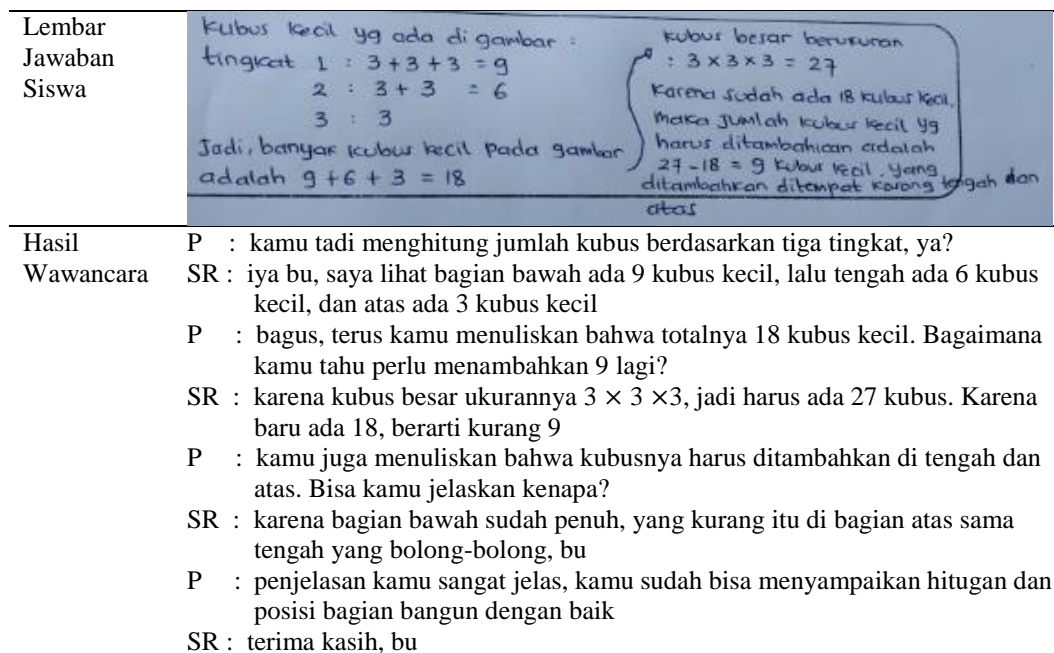 Lembar
Jawaban
Siswa
Kubus kecil yg ada di gambar :
tingkat 1 : 3+3+3 = 9
2 : 3+3 = 6
3 : 3
Jadi, banyak kubus kecil pada gambar
adalah 9+6+3 = 18
kubus besar berukuran
: 3×3×3 = 27
Karena sudah ada 18 kubus kecil,
maka jumlah kubus kecil yg
harus ditambahkan adalah
27-18 = 9 kubus kecil. yang
ditambahkan ditempat kosong tengah dan
atas
Hasil
Wawancara
P : kamu tadi menghitung jumlah kubus berdasarkan tiga tingkat, ya?
SR : iya bu, saya lihat bagian bawah ada 9 kubus kecil, lalu tengah ada 6 kubus
kecil, dan atas ada 3 kubus kecil
P : bagus, terus kamu menuliskan bahwa totalnya 18 kubus kecil. Bagaimana
kamu tahu perlu menambahkan 9 lagi?
SR : karena kubus besar ukurannya 3 × 3 ×3, jadi harus ada 27 kubus. Karena
baru ada 18, berarti kurang 9
P : kamu juga menuliskan bahwa kubusnya harus ditambahkan di tengah dan
atas. Bisa kamu jelaskan kenapa?
SR : karena bagian bawah sudah penuh, yang kurang itu di bagian atas sama
tengah yang bolong-bolong, bu
P : penjelasan kamu sangat jelas, kamu sudah bisa menyampaikan hitugan dan
posisi bagian bangun dengan baik
SR : terima kasih, bu